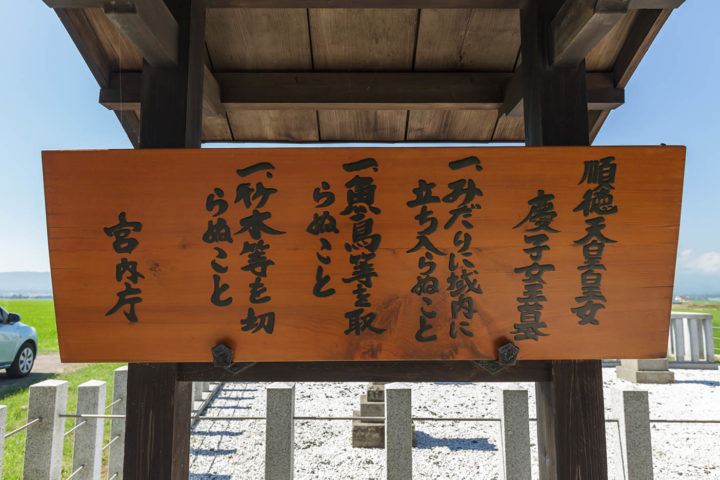 順徳天皇皇女
慶子女王墓
一、みだりに域内に
立ち入らぬこと
一、魚鳥等を取
らぬこと
一、竹木等を切
らぬこと
宮内庁